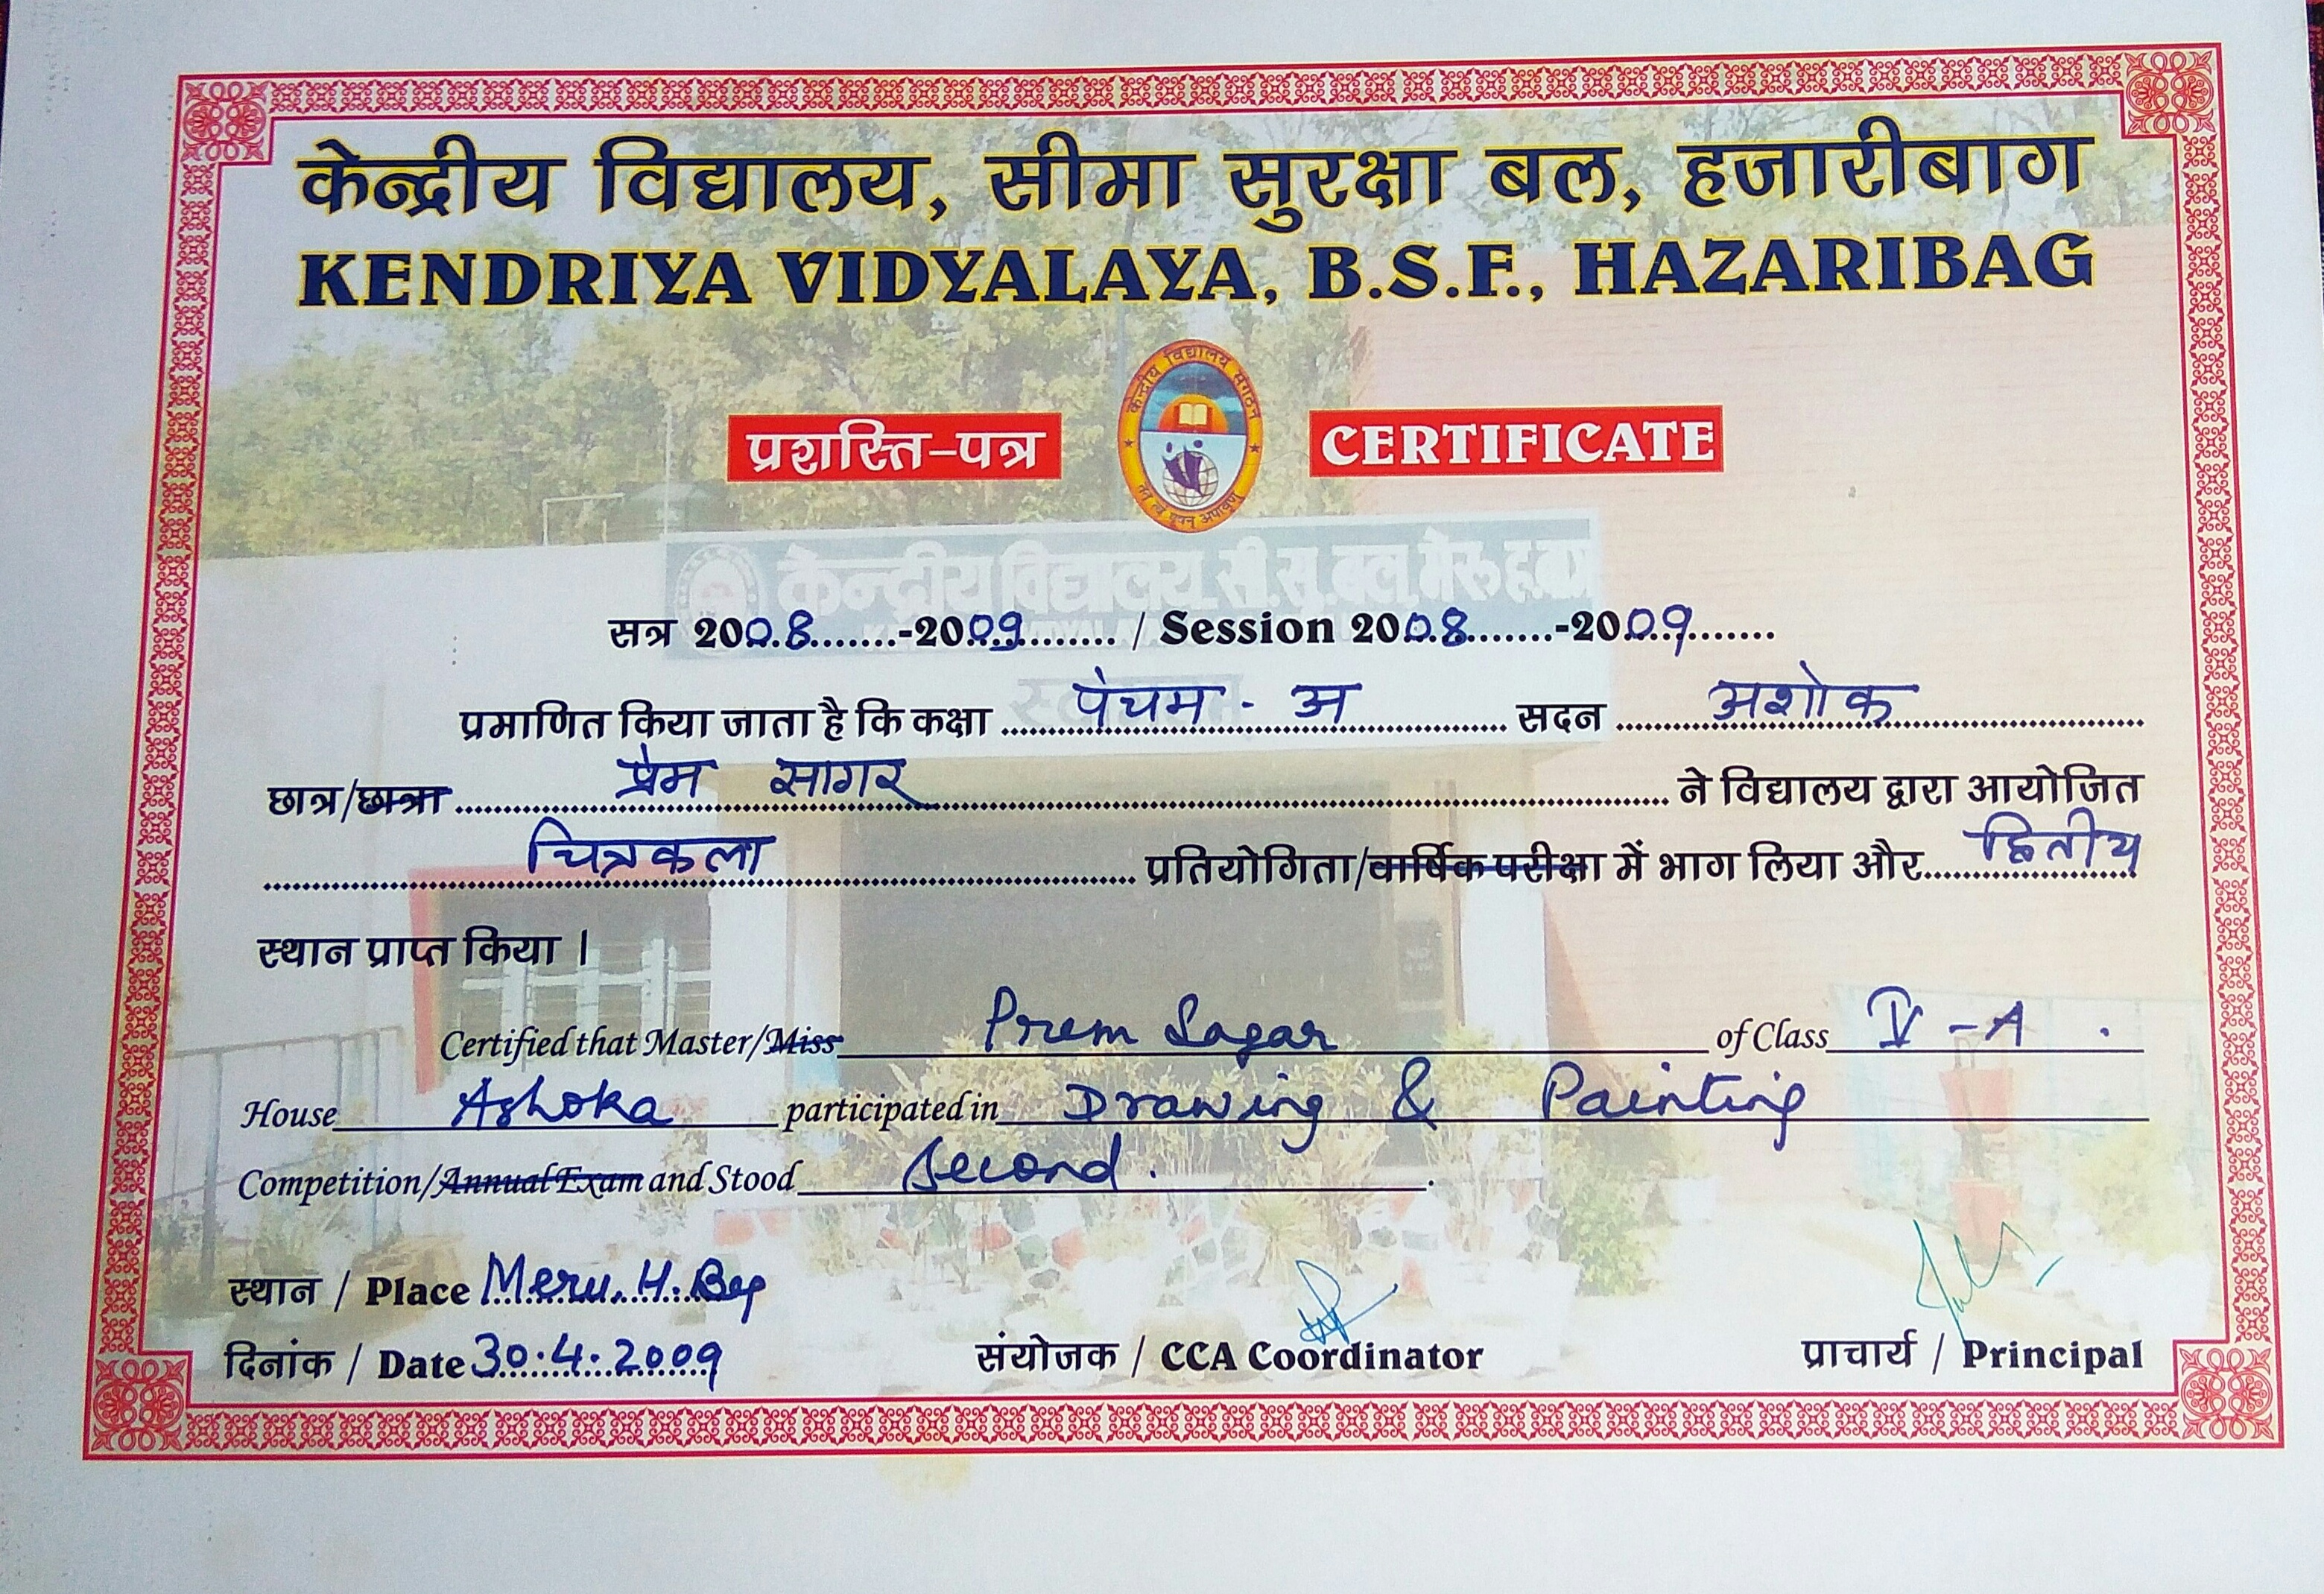 केन्द्रीय विद्यालय, सीमा सुरक्षा बल, हजारीबाग
KENDRIYA VIDYALAYA, B.S.F., HAZARIBAG
केन्द्रीय विद्यालय संगठन
प्रशस्ति-पत्र CERTIFICATE
तत् त्वं पूषन् अपावृणु
केन्द्रीय विद्यालय सी.सु.बल मेरु ह.बाग
सत्र 2008.......-2009.......... / Session 2008.......-2009.......
प्रमाणित किया जाता है कि कक्षा पंचम - अ सदन अशोक
छात्र/छात्रा प्रेम सागर ने विद्यालय द्वारा आयोजित
चित्रकला प्रतियोगिता/वार्षिक परीक्षा में भाग लिया और द्वितीय
स्थान प्राप्त किया ।
Certified that Master/Miss Prem Sagar of Class V - A .
House Ashoka participated in Drawing & Painting
Competition/Annual Exam and Stood Second.
स्थान / Place Meru, H. Bag
दिनांक / Date 30.4.2009 संयोजक / CCA Coordinator प्राचार्य / Principal